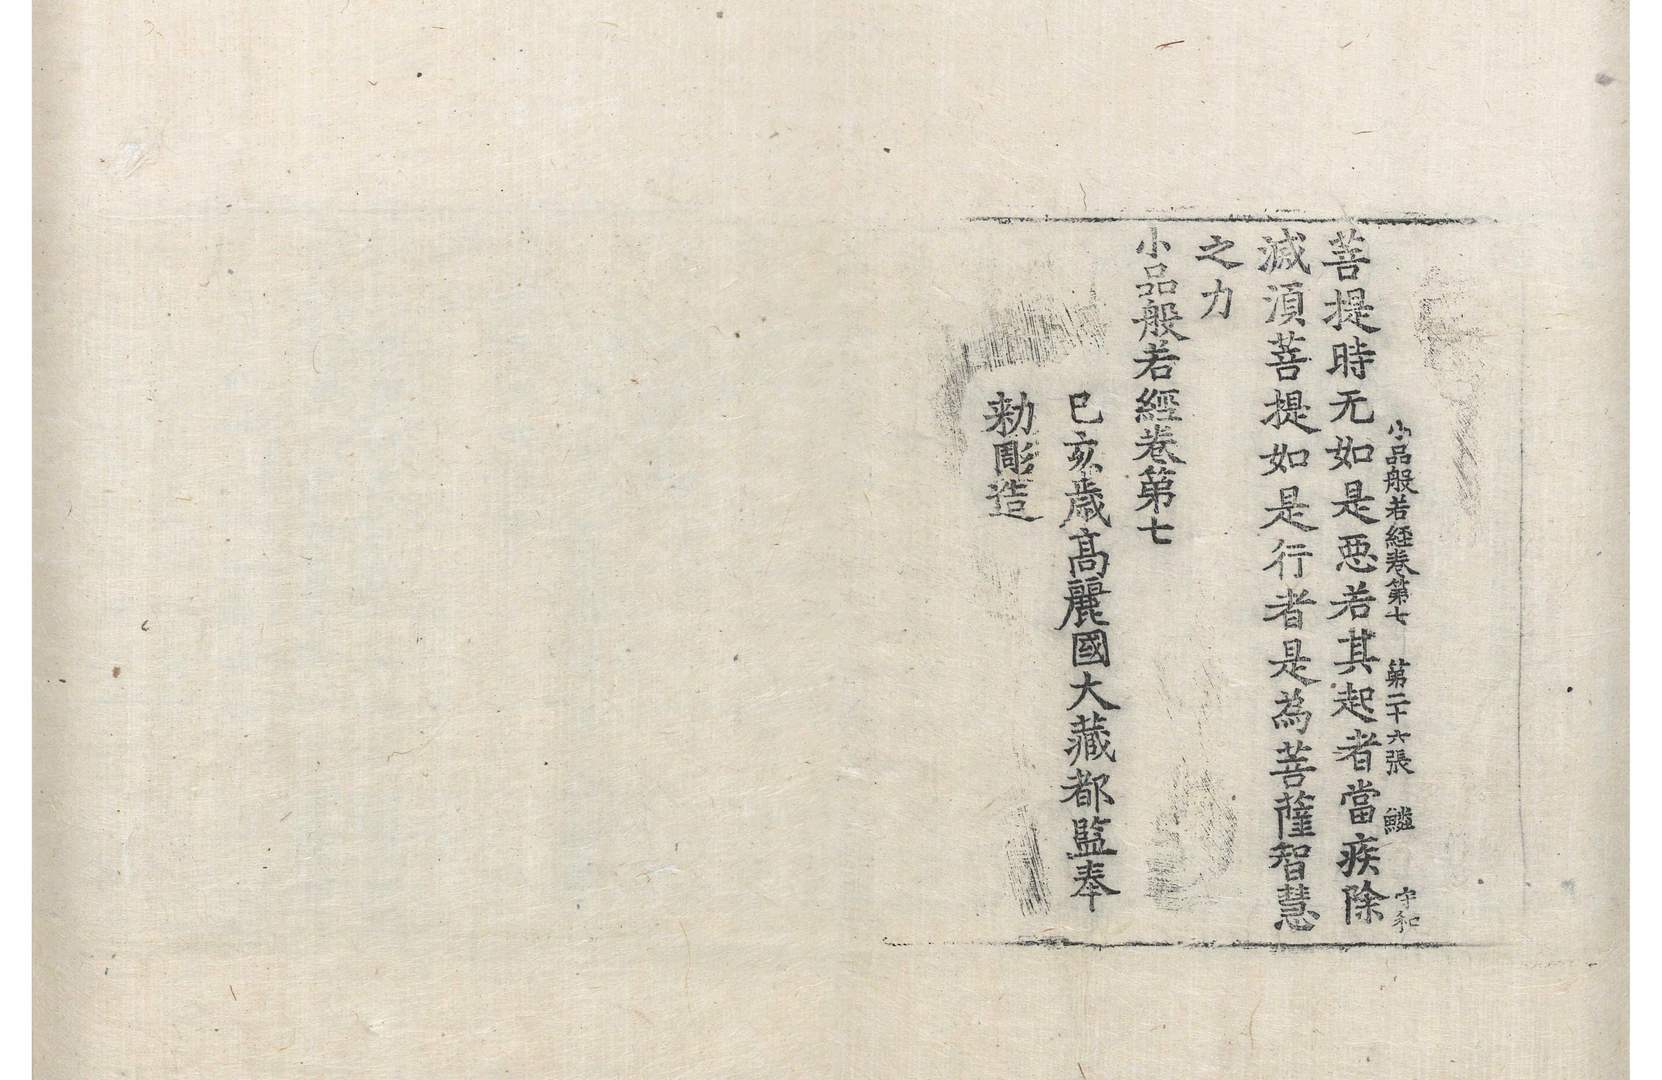 小品般若経卷第七 第二十六張 鱗 守和
菩提時无如是惡若其起者當疾除
滅湏菩提如是行者是為菩薩智慧
之力
小品般若經卷第七
己亥歲高麗國大藏都監奉
勑彫造